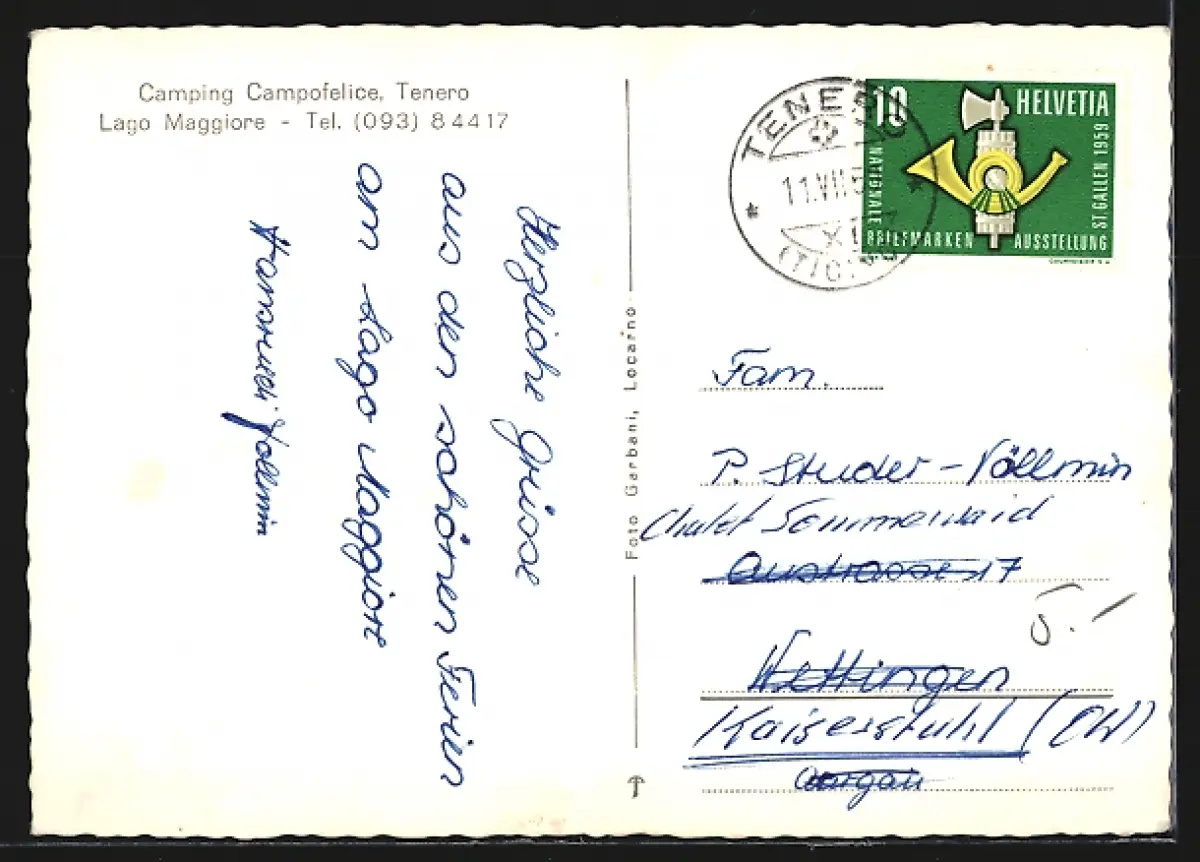 Camping Campofelice, Tenero
Lago Maggiore - Tel. (093) 8 44 17
Herzliche Grüsse
aus den schönen Ferien
am Lago Maggiore
Hansruedi Vollmin
Foto Garbani, Locarno
TENERO
11.VII.5
(TICINO)
10
HELVETIA
NATIONALE
BRIEFMARKEN
AUSSTELLUNG
ST. GALLEN 1959
Fam.
P. Studer-Völlmin
Chalet Sommerwaid
Austrasse 17
5.-
Wettingen
Kaiserstuhl (OW)
Aargau